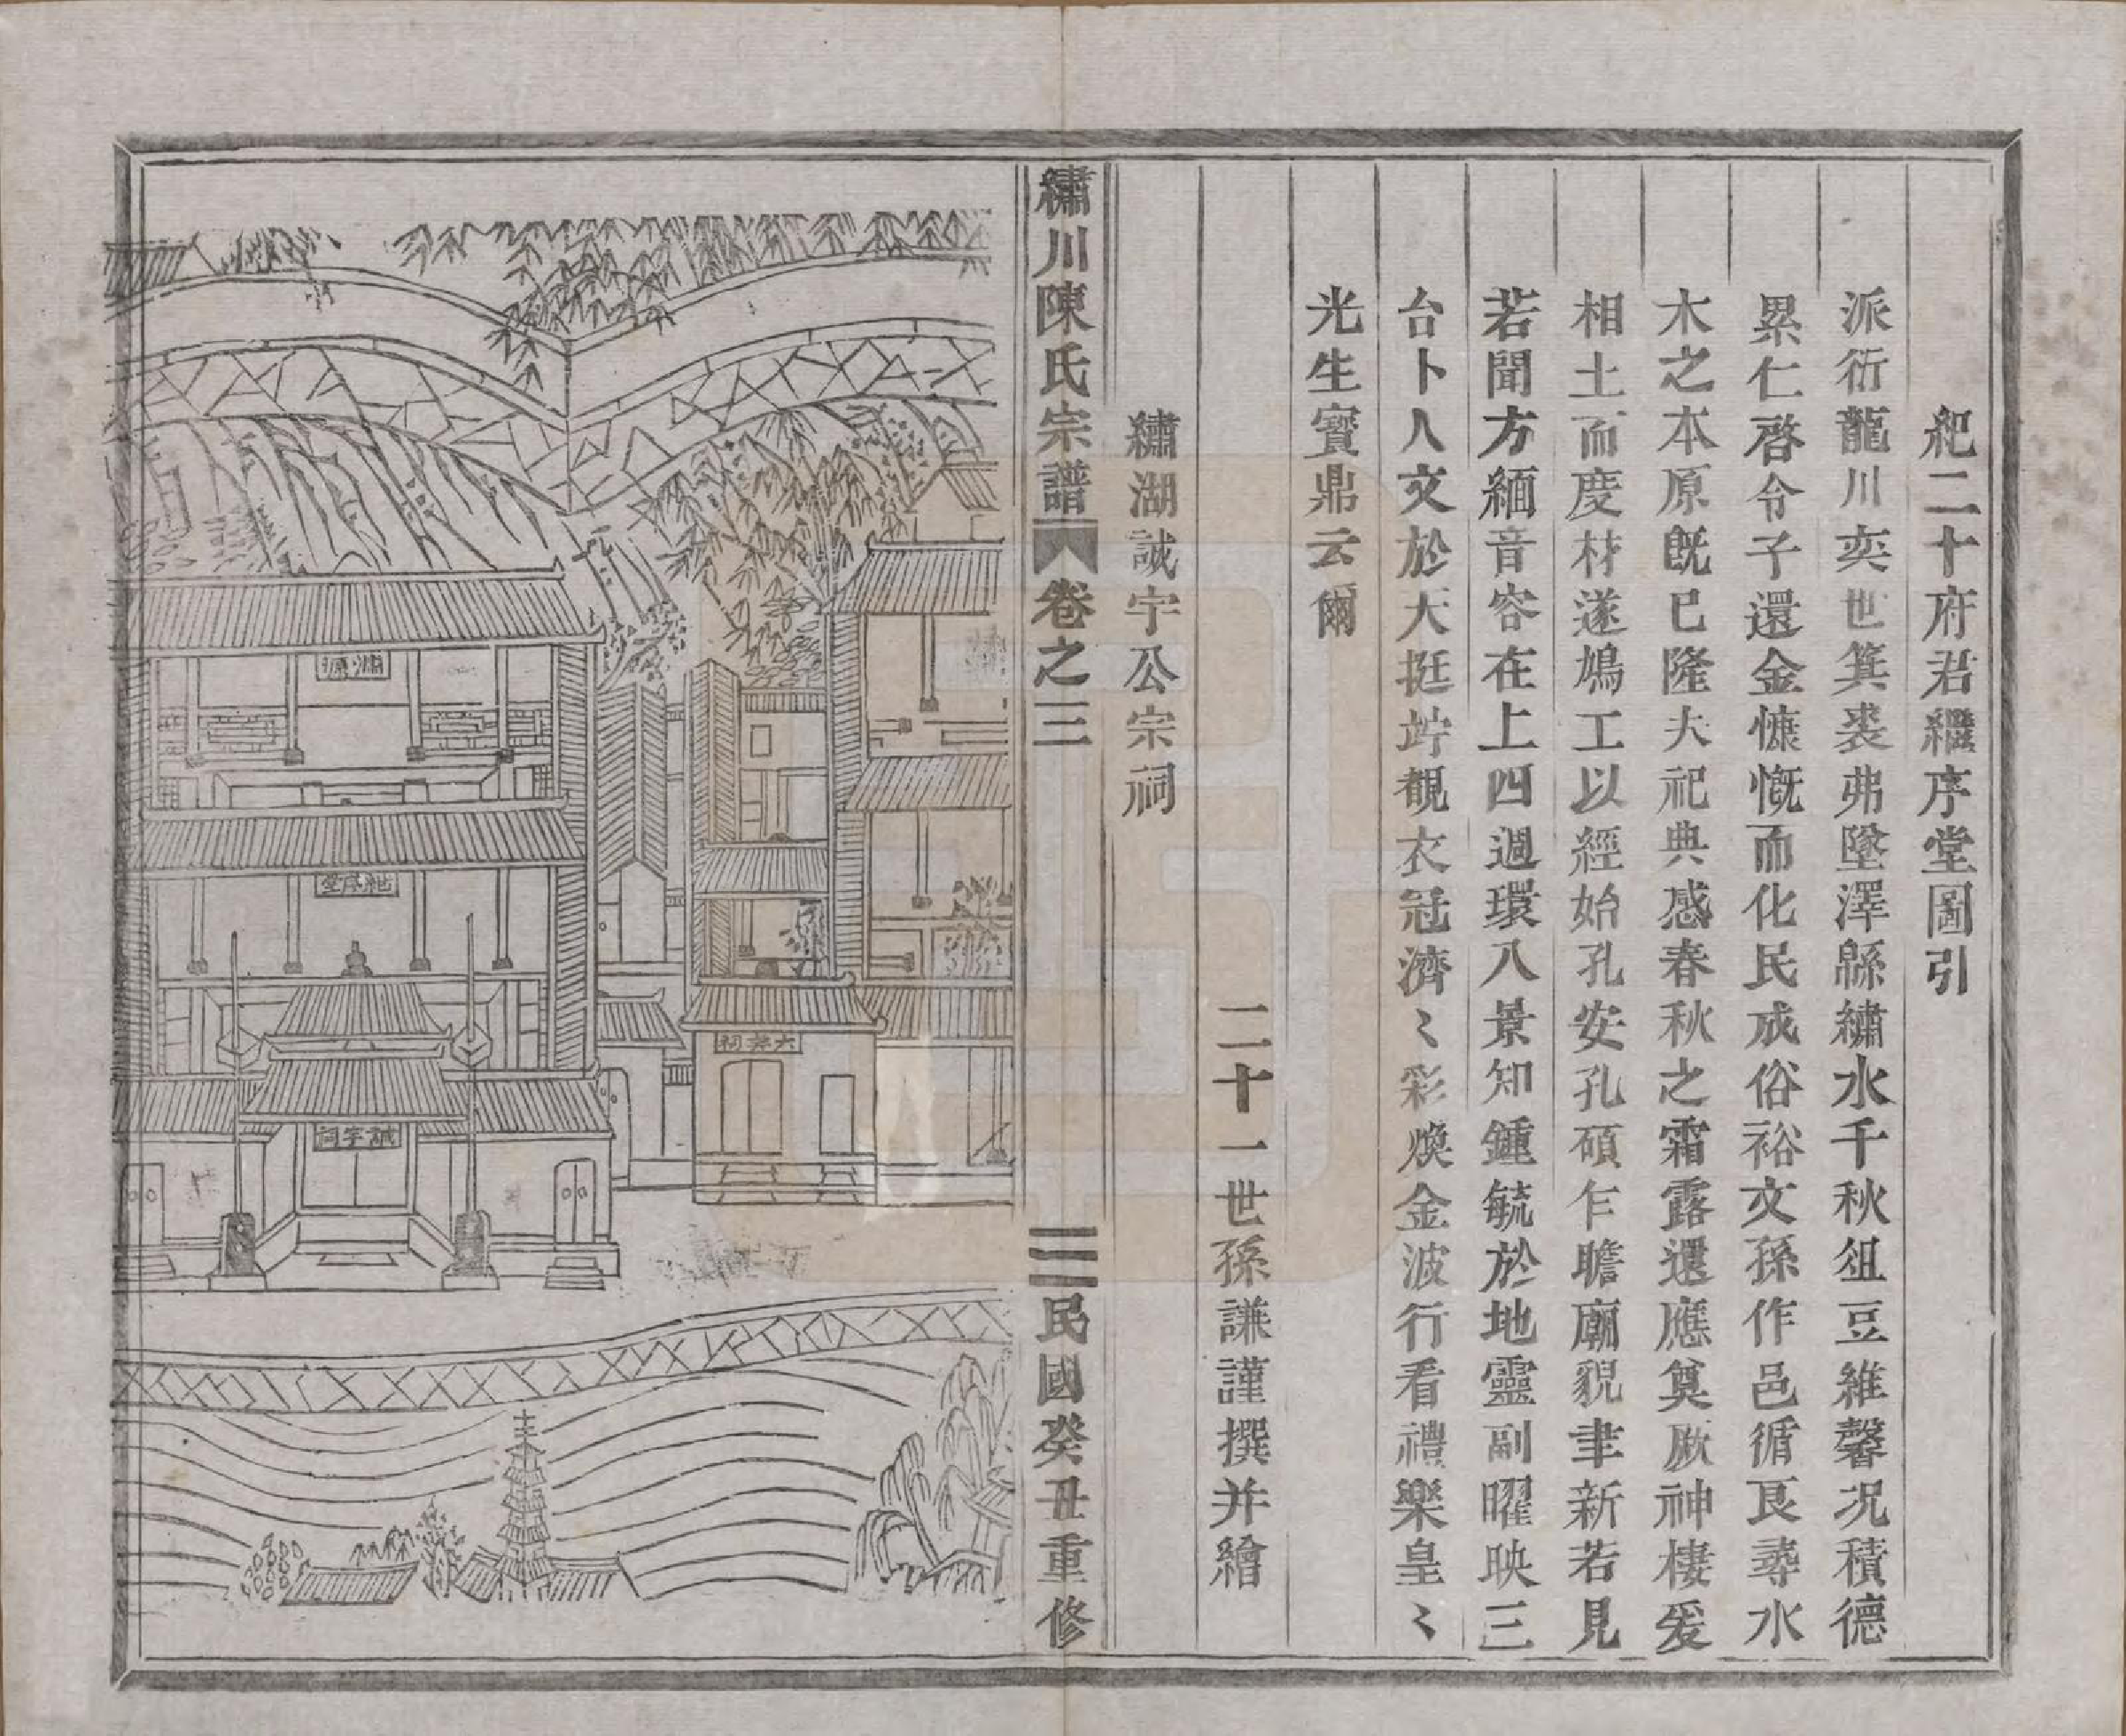 紀二十府君繼序堂圖引
派衍龍川奕世箕裘弗墜澤緜繡水千秋俎豆維馨况積德
累仁啓令子還金慷慨而化民成俗裕文孫作邑循良尋水
木之本原旣已隆大祀典感春秋之霜露還應奠厥神棲爰
相土而度材遂鳩工以經始孔安孔碩乍瞻廟貌聿新若見
若聞方緬音容在上四週環八景知鍾毓於地靈副曜映三
台卜人文於大挺竚覩衣冠濟〻彩煥金波行看禮樂皇〻
光生寳鼎云爾
二十一世孫謙謹撰并繪
繡湖誠宇公宗祠
繡川陳氏宗譜
卷之三
三
民國癸丑重修
繼序堂
大宗祠
誠宇祠